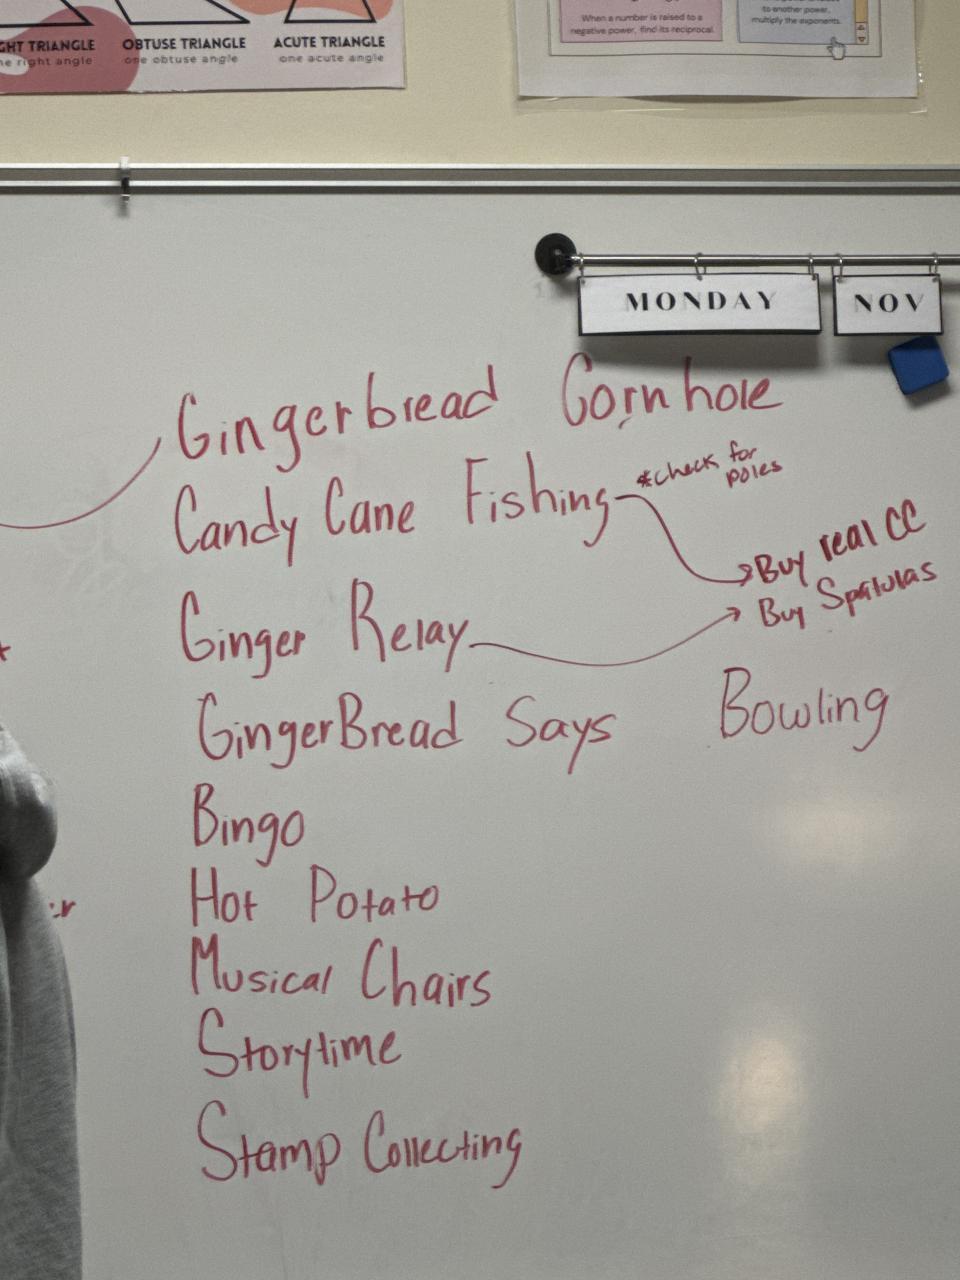 GHT TRIANGLE
ne right angle
OBTUSE TRIANGLE
one obtuse angle
ACUTE TRIANGLE
one acute angle
When a number is raised to a
negative power, find its reciprocal.
to another power,
multiply the exponents.
MONDAY
NOV
Gingerbread Cornhole
Candy Cane Fishing
*check for
poles
Buy real CC
Ginger Relay
Buy Spatulas
GingerBread Says
Bowling
Bingo
Hot Potato
Musical Chairs
Storytime
Stamp Collecting